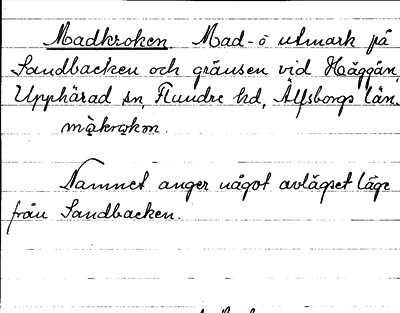 Madkroken Mad- o utmark på
Sandbacken och gränsen vid Häggån,
Upphärad sn, Flundre hd, Älfsborgs län.
màkrǫkǝn.
Namnet anger något avlägset läge
från Sandbacken.